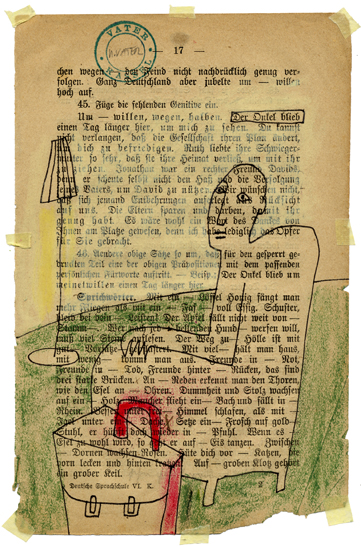 VATER
— 17 —
chen wegen — den Feind nicht nachdrücklich genug ver-
folgen. Ganz Deutschland aber jubelte um — willen
hoch auf.
45. Füge die fehlenden Genitive ein.
Um — willen, wegen, halben. Der Onkel blieb
einen Tag länger hier, um mich zu sehen. Du kannst
nicht verlangen, daß die Gesellschaft ihren Plan ändert,
um dich zu befriedigen. Ruth liebte ihre Schwieger-
mutter so sehr, daß sie ihre Heimat verließ, um mit ihr
zu ziehen. Jonathan war ein Freund Davids,
denn er scheute selbst nicht den Haß und die Verfolgung
seines Vaters, um David zu nützen. Wir wünschen nicht,
daß sich jemand Entbehrungen auferlegt, Rücksicht
auf uns. Die Eltern sparen und darben, damit ihr
genug habt. Es wäre wohl
Ihnen am Platze gewesen, denn ich habe lediglich das Opfer
für Sie gebracht.
46. Ändere obige Sätze so um, daß für den gesperrt ge-
druckten Teil eine der obigen Präpositionen mit dem passenden
persönlichen Fürworte auftritt. — Beisp.: Der Onkel blieb um
meinetwillen einen Tag länger hier.
Sprichwörter. Mit ein— Löffel Honig fängt man
mehr Fliegen als mit ein— Faß voll Essig. Schuster,
bleib bei dein— Leisten! Der Apfel fällt nicht weit von —
Stamm. Wer nach jed— bellenden Hund werfen will,
muß viel Steine auflesen. Der Weg zu — Hölle ist mit
gut— Vorsätzen gepflastert. Mit viel— hält man haus,
mit wenig— kommt man aus. Freunde in — Not,
Freunde in — Tod, Freunde hinter — Rücken, das sind
drei starke Brücken. An — Reden erkennt man den Thoren,
wie den Esel an — Ohren. Dummheit und Stolz wachsen
auf ein— Holz. Mancher fliegt ein— Bach und fällt in
Rhein. Besser unter — Himmel schlafen, als mit
Last unter ein— Dache. Setz ein— Frosch auf gold—
Stuhl, er hüpft doch wieder in — Pfuhl. Wenn es —
Esel zu wohl wird, so geht er auf — Eis tanzen. Zwischen
Dornen wachsen Rosen. Hüte dich vor — Katzen, die
vorn lecken und hinten kratzen. Auf — groben Klotz gehört
ein grober Keil.
Deutsche Sprachschule VI. K. 2